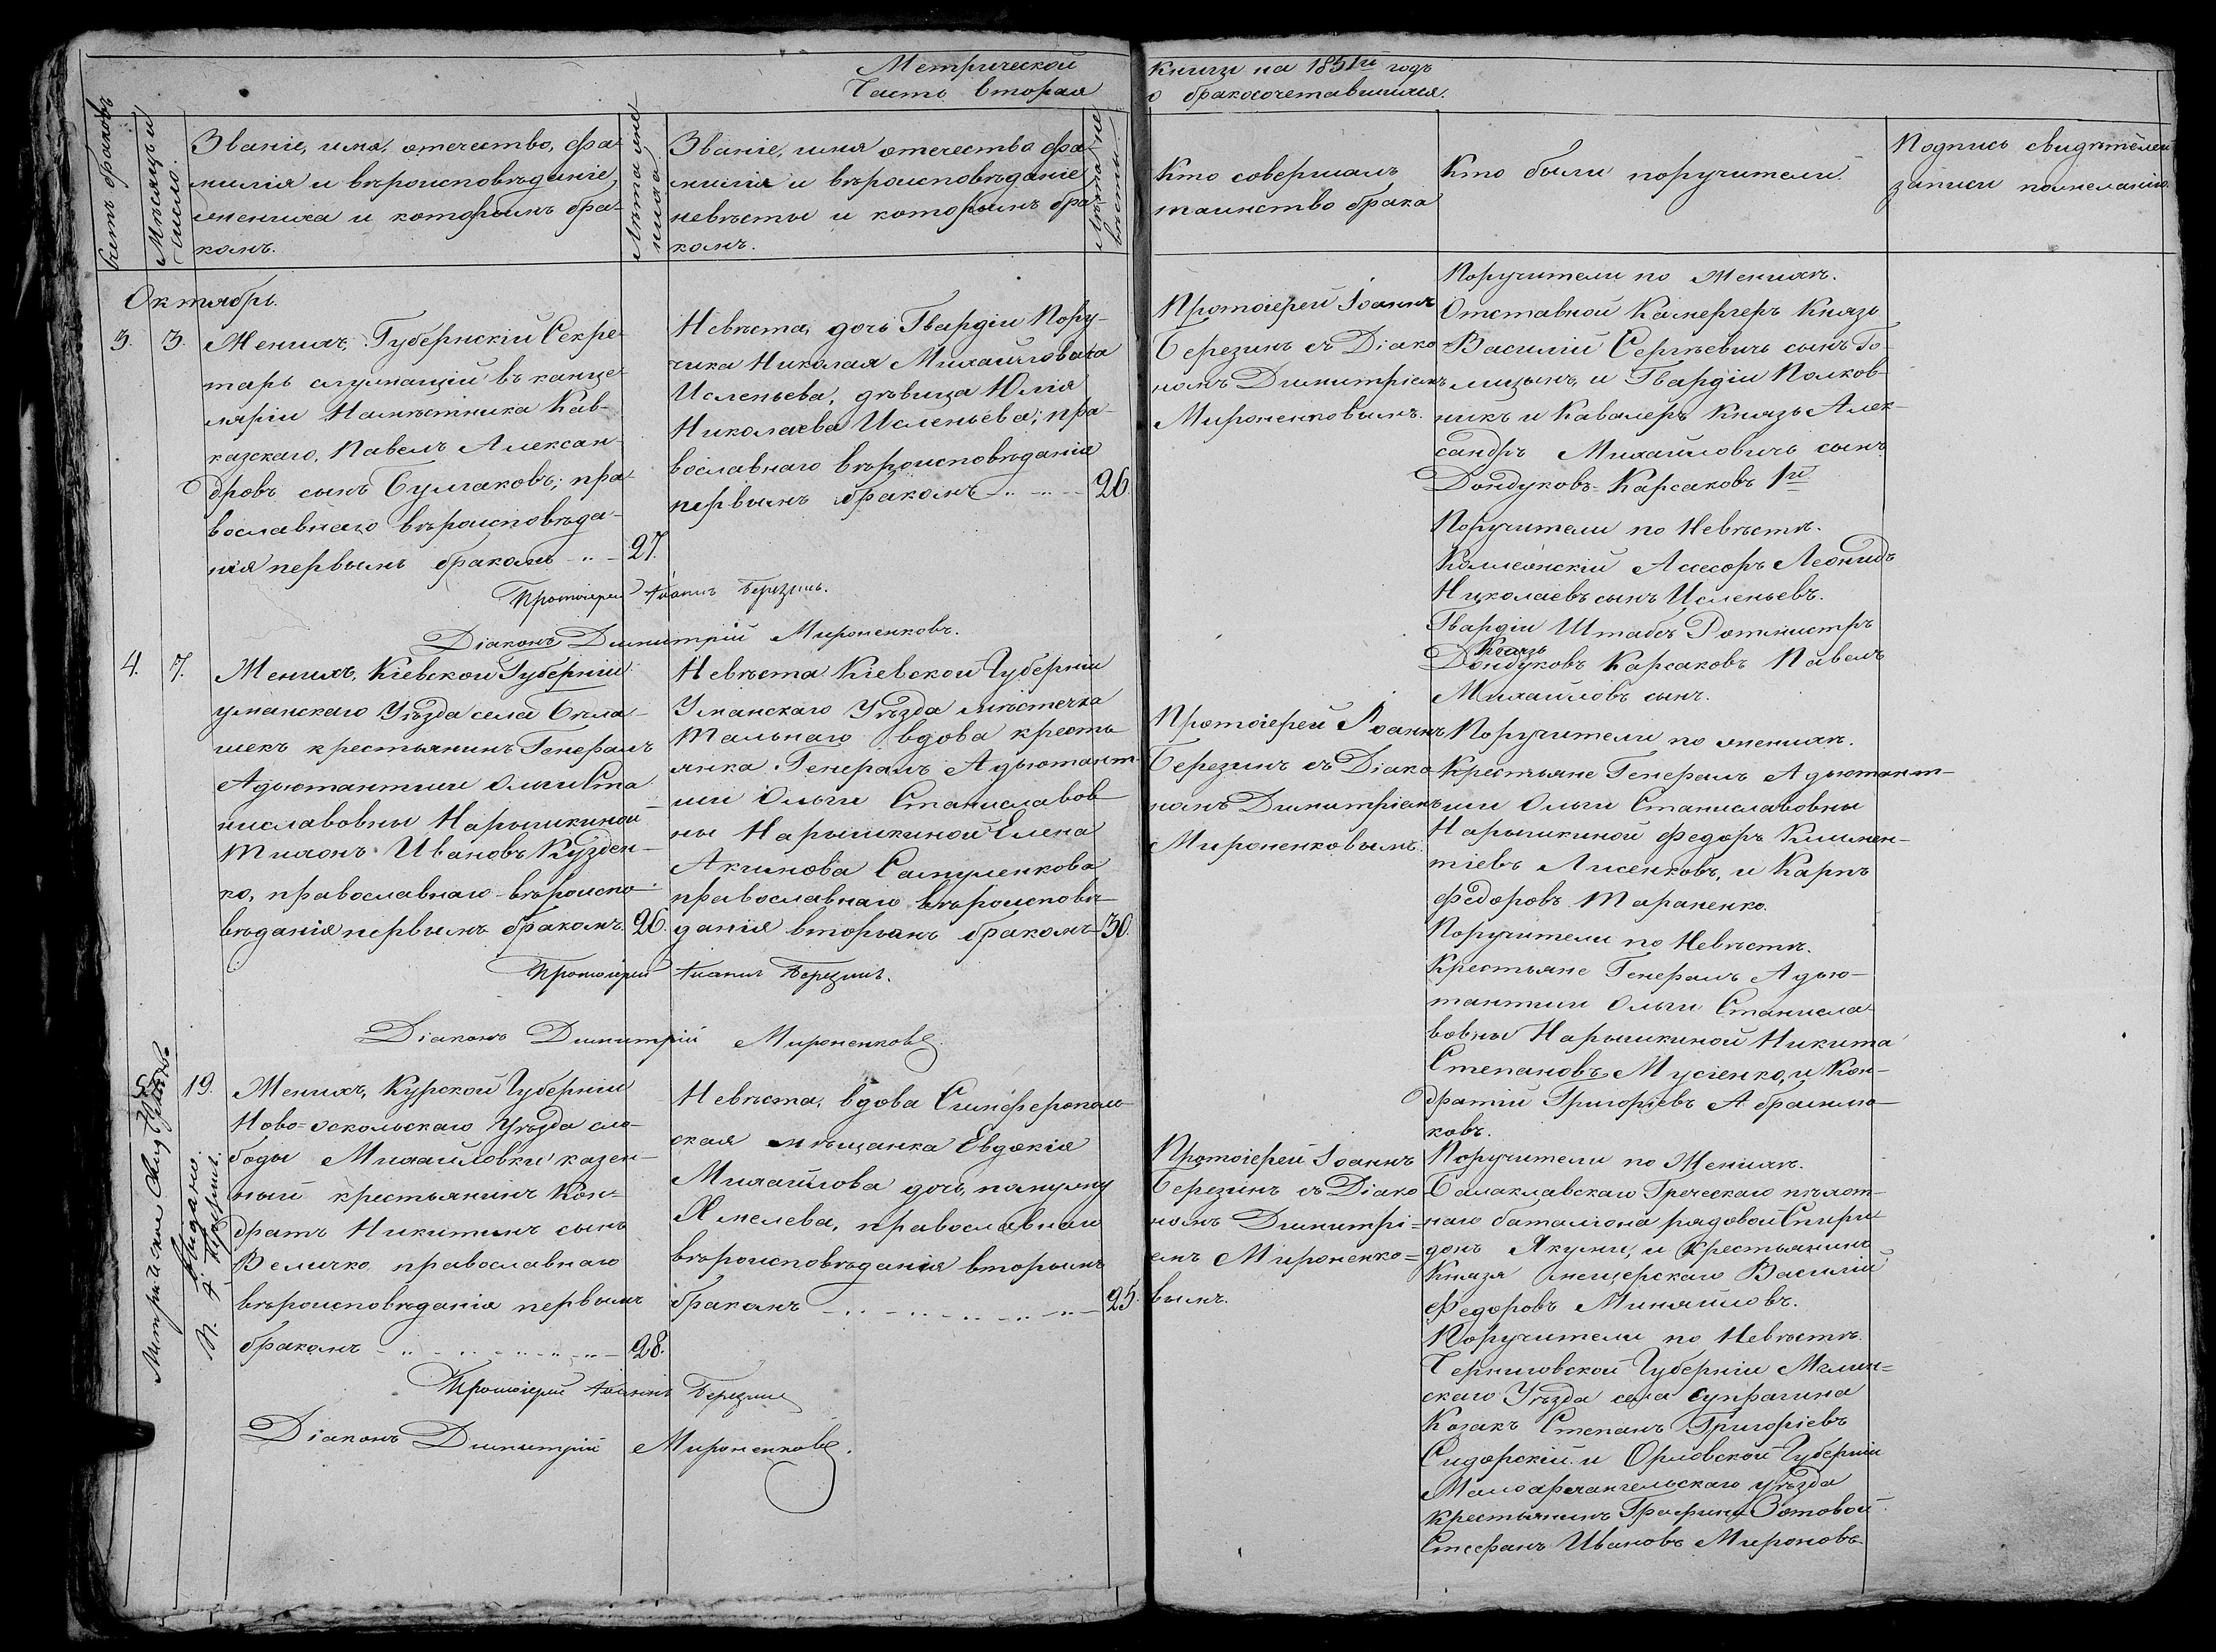 Метрической
Часть вторая
книги на 1851й годъ
о бракосочетавшихся.
Счетъ браковъ
Мѣсяцъ и
число.
Званіе, имя, отечество, фа-
милія и вѣроисповѣданіе,
жениха и которымъ бра-
комъ.
Лѣта же-
ниха.
Званіе, имя отечество фа-
милія и вѣроисповѣданіе
невѣсты и которымъ бра
комъ.
Лѣта не
вѣсты.
Кто совершалъ
таинство брака
Кто были поручители.
Подпись свидѣтелей
записи по желанію.
Октябрь.
3. 3.
Женихъ, Губернскій Секре-
тарь служащій въ канце-
ляріи Намѣстника Кав-
казскаго, Павелъ Алексан-
дровъ сынъ Булгаковъ; пра-
вославнаго вѣроисповѣда-
нія первымъ бракомъ 27.
Невѣста, дочь Гвардіи Пору-
чика Николая Михайловича
Исленьева, дѣвица Юлія
Николаева Исленьева; пра-
вославнаго вѣроисповѣданія
первымъ бракомъ 26
Протоіерей Іоаннъ
Березинъ съ Діако-
номъ Димитріемъ
Мироненковымъ.
Поручители по Женихѣ.
Отставной Камергеръ Князь
Василій Сергѣевичъ сынъ Го-
лицынъ, и Гвардіи Полков-
никъ и Кавалеръ Князь Алек-
сандръ Михайловичъ сынъ
Дондуковъ-Карсаковъ 1й
Поручители по Невѣстѣ.
Коллежскій Ассесоръ Леонидъ
Николаевъ сынъ Исленьевъ.
Гвардіи Штабсъ Ротмистръ
Князь
Дондуковъ Карсаковъ Павелъ
Михайловъ сынъ.
Протоіерей Іоаннъ Березинъ.
Діаконъ Димитрій Мироненковъ.
4. 7.
Женихъ, Кіевской Губерніи
уманскаго Уѣзда села Бѣла-
шекъ крестьянинъ Генералъ
Адьютантши Ольги Ста-
ниславовны Нарышкиной
Тихонъ Ивановъ Кузден-
ко, православнаго вѣроиспо-
вѣданія первымъ бракомъ 26.
Невѣста Кіевской Губерніи
Уманскаго Уѣзда мѣстечка
Тальнаго вдова кресть
янка Генералъ Адьютант-
ши Ольги Станиславов-
ны Нарышкиной Елена
Акимова Самуленкова
православнаго вѣроисповѣ-
данія вторымъ бракомъ 30.
Протоіерей Іоаннъ
Березинъ съ Діако
номъ Димитріемъ
Мироненковымъ.
Поручители по женихѣ.
Крестьяне Генералъ Адьютант-
ши Ольги Станиславовны
Нарышкиной Федоръ Климен-
тіевъ Лисенковъ, и Карпъ
Федоровъ Тараненко.
Поручители по Невѣстѣ.
Крестьяне Генералъ Адью-
тантши Ольги Станисла-
вовны Нарышкиной Никита
Степановъ Мусіенко, и Кон-
дратій Григоріевъ Абрамлю-
ковъ.
Протоіерей Іоаннъ Березинъ.
Діаконъ Димитрій Мироненковъ
5. 19.
Выдано.
Женихъ, Курской Губерніи
Ново-оскольскаго Уѣзда сло-
боды Михайловки казен-
ный крестьянинъ Кон-
дратъ Никитинъ сынъ
Величко православнаго
вѣроисповѣданія первымъ
бракомъ 28.
Невѣста, вдова Симферополь-
ская мѣщанка Евдокія
Михайлова дочь, по мужу
Хмелева, православнаго
вѣроисповѣданія вторымъ
бракомъ 25.
Протоіерей Іоаннъ
Березинъ съ Діако
номъ Димитрі-
емъ Мироненко-
вымъ.
Поручители по Женихѣ.
Балаклавскаго Греческаго пѣхот-
наго баталіона рядовой Спири-
донъ Якуми, и Крестьянинъ
Князя Мещерскаго Василий
Федоровъ Михайловъ.
Поручители по Невѣстѣ.
Черниговской Губерніи Мглин-
скаго Уѣзда села Супрагина
Козакъ Степанъ Григоріевъ
Сидорскій и Орловской Губерніи
Малоархангельскаго уѣзда
крестьянинъ Графини Зотовой
Стефанъ Ивановъ Мироновъ
Протоіерей Іоаннъ Березинъ
Діаконъ Димитрій Мироненковъ.